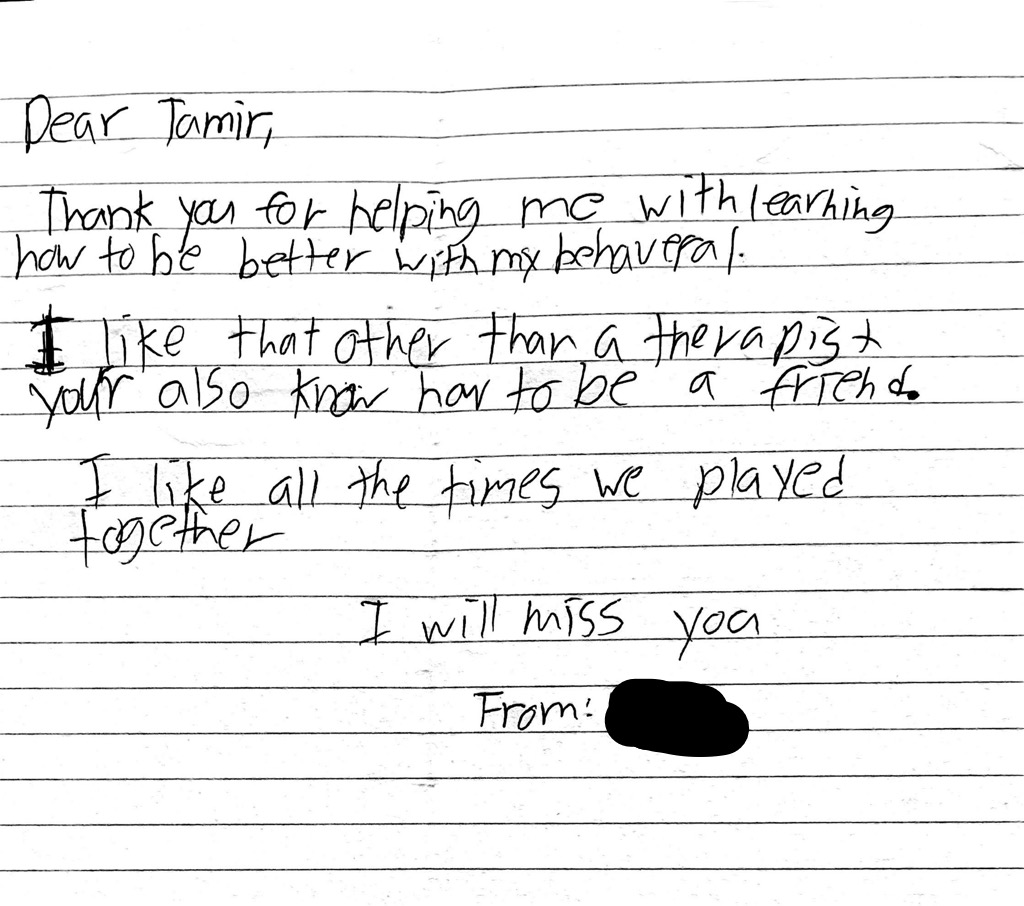 Dear Tamir,
Thank you for helping me with learning
how to be better with my behaveral.
I like that other than a therapist
your also know how to be a friend.
I like all the times we played
together
I will miss you
From: